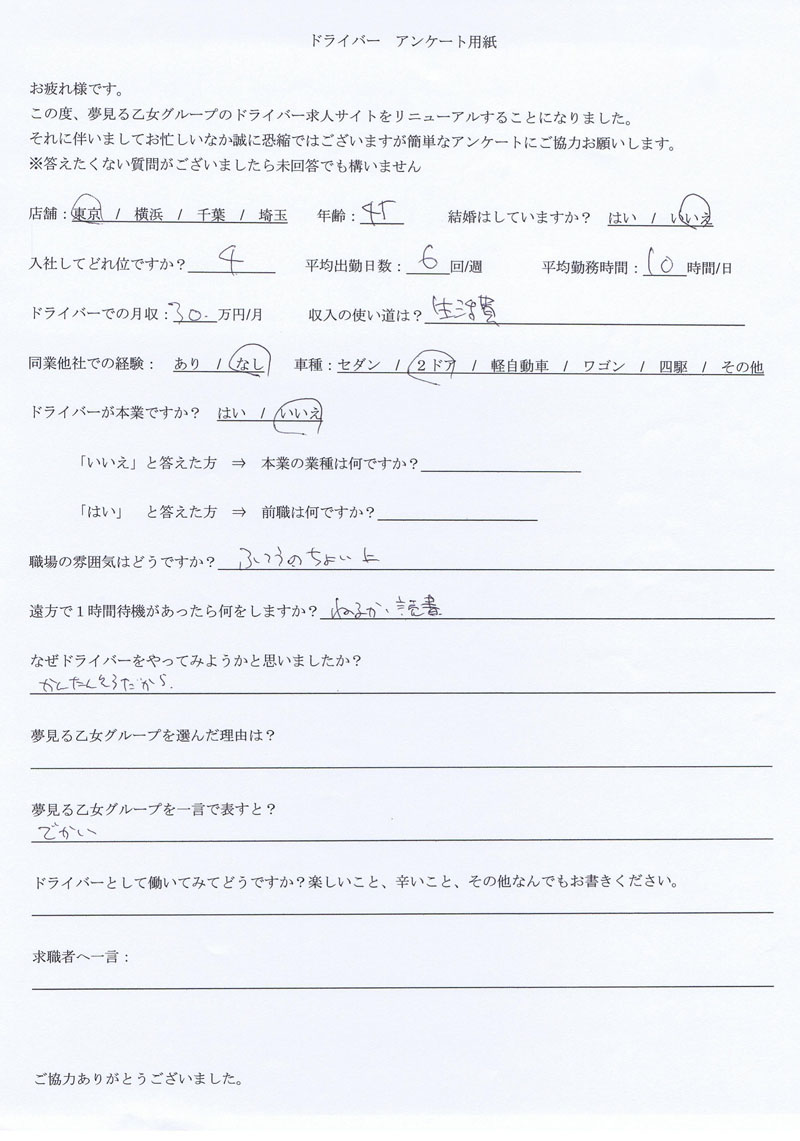 ドライバー　アンケート用紙
お疲れ様です。
この度、夢見る乙女グループのドライバー求人サイトをリニューアルすることになりました。
それに伴いましてお忙しいなか誠に恐縮ではございますが簡単なアンケートにご協力お願いします。
※答えたくない質問がございましたら未回答でも構いません
店舗：東京　/　横浜　/　千葉　/　埼玉　　年齢：45　　結婚はしていますか？　はい　/　いいえ
入社してどれ位ですか？ 4　　平均出勤日数：6 回/週　　平均勤務時間：10 時間/日
ドライバーでの月収：30. 万円/月　　収入の使い道は？ 生活費
同業他社での経験：　あり　/　なし　　車種：セダン　/　２ドア　/　軽自動車　/　ワゴン　/　四駆　/　その他
ドライバーが本業ですか？　はい　/　いいえ
「いいえ」と答えた方　⇒　本業の業種は何ですか？
「はい」　と答えた方　⇒　前職は何ですか？
職場の雰囲気はどうですか？ ふつうのちょい上
遠方で１時間待機があったら何をしますか？ ねるか、読書
なぜドライバーをやってみようかと思いましたか？
かんたんそうだから.
夢見る乙女グループを選んだ理由は？
夢見る乙女グループを一言で表すと？
でかい
ドライバーとして働いてみてどうですか？楽しいこと、辛いこと、その他なんでもお書きください。
求職者へ一言：
ご協力ありがとうございました。